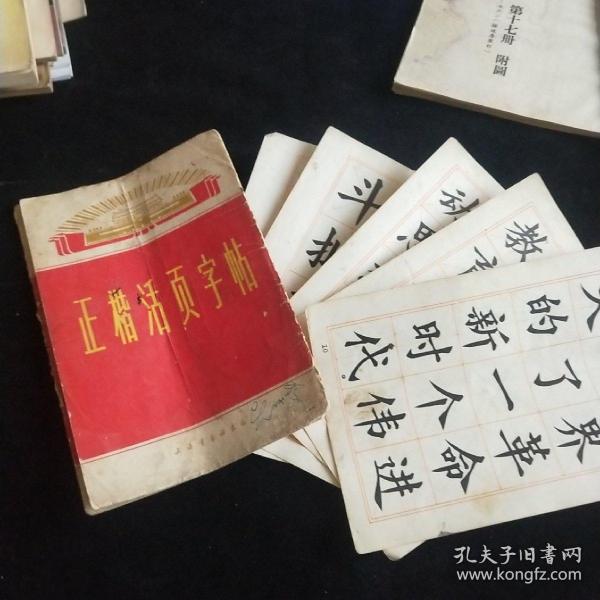 正楷活页字帖
第十七册 附圖
斗
动
思
教
10
界革命进
了一个伟
的新时代
孔夫子旧书网
www.kongfz.com